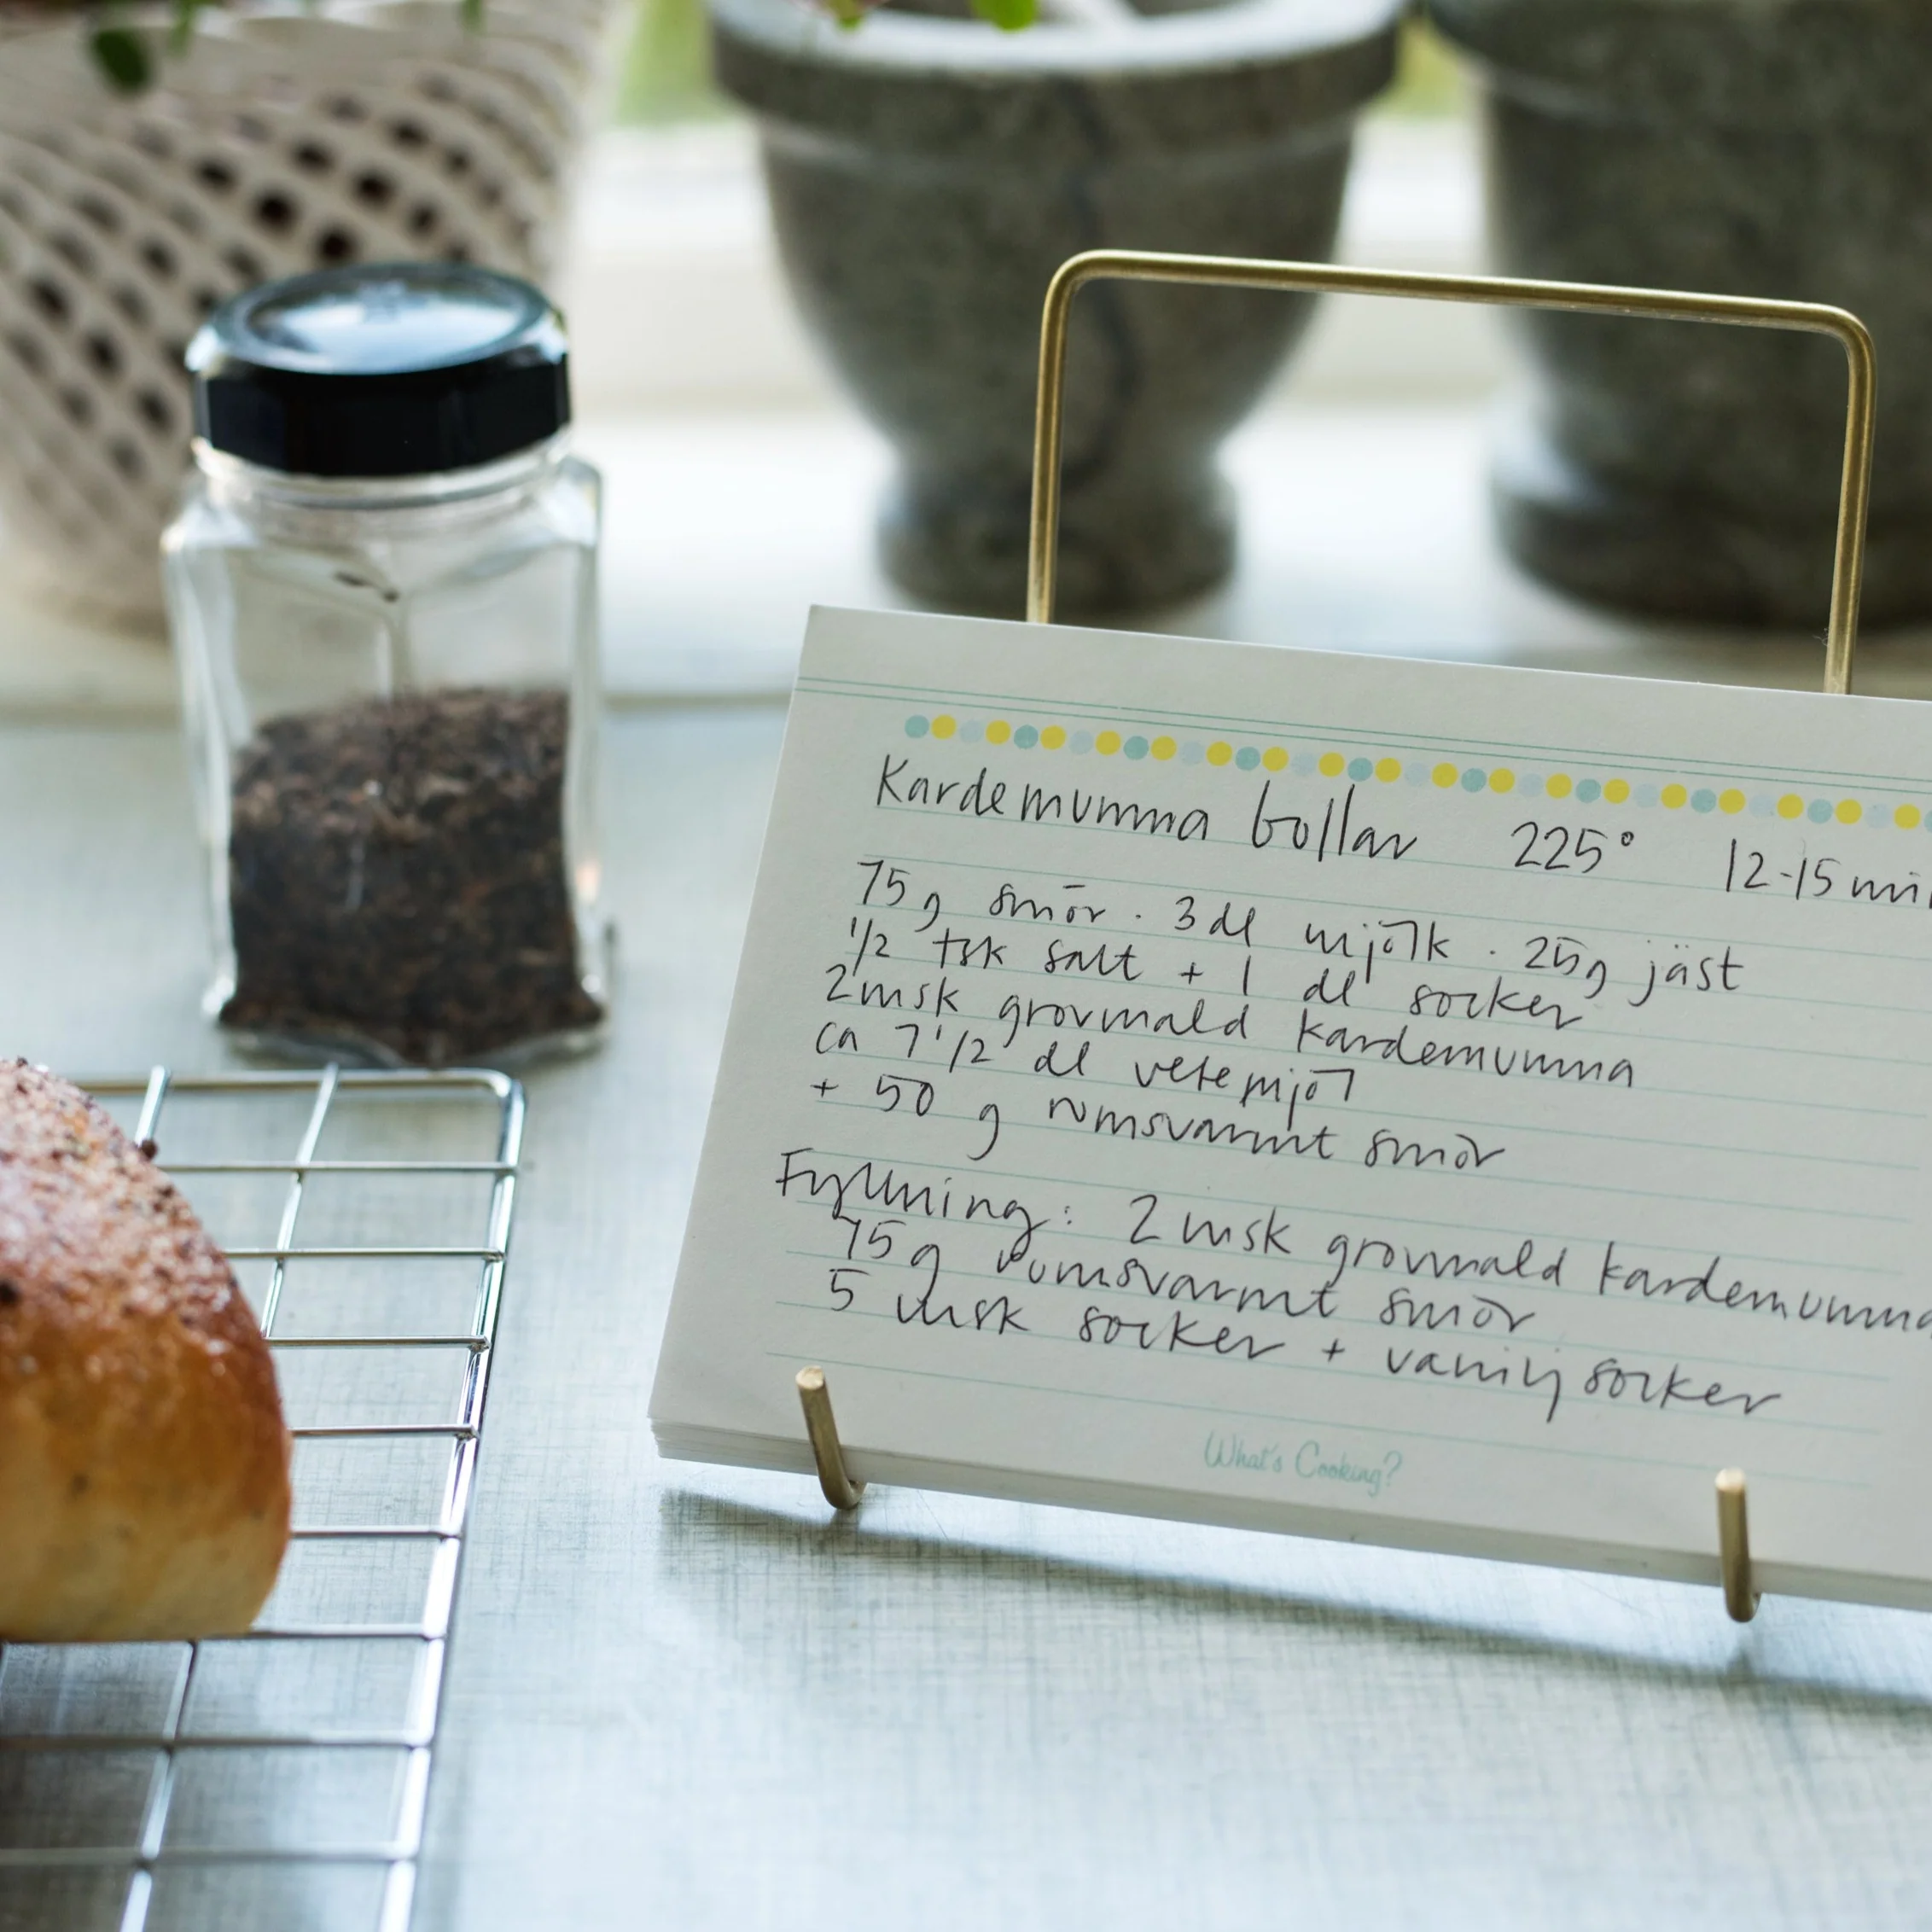 Kardemumma bollar 225° 12-15 min
75g smör · 3 dl mjölk · 25g jäst
1/2 tsk salt + 1 dl socker
2 msk grovmald kardemumma
ca 7 1/2 dl vetemjöl
+ 50 g rumsvarmt smör
Fyllning: 2 msk grovmald kardemumma
75 g rumsvarmt smör
5 msk socker + vaniljsocker
What's Cooking?